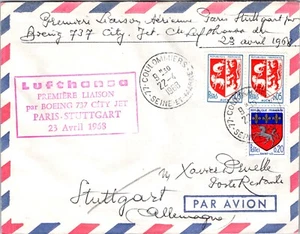 Première Liaison Aérienne Paris Stuttgart par
Boeing 737 City Jet de Lufthansa du
23 avril 1968
Lufthansa
PREMIÈRE LIAISON
par BOEING 737 CITY JET
PARIS-STUTTGART
25 Avril 1968
77 COULOMMIERS
22-4
1968
SEINE-ET-MARNE
0,05
0,20
Mr Xavier
Poste Restante
Stuttgart
(Allemagne)
PAR AVION